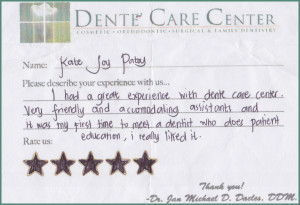 DENTE CARE CENTER
COSMETIC • ORTHODONTIC • SURGICAL & FAMILY DENTISTRY
Name: Kate Joy
Please describe your experience with us...
I had a great experience with dente care center.
Very friendly and accumodating assistants and
it was my first time to meet a dentist who does patient
education, i really liked it.
Rate us:
Thank you!
-Dr. Jan Michael D. Daclos, DDM.